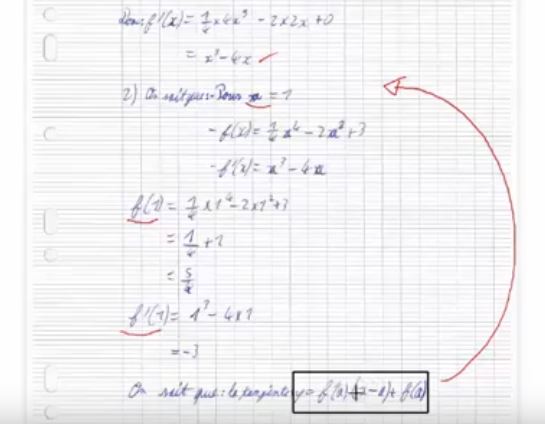 Donc f'(x) = 1/4 × 4x³ - 2 × 2x + 0
= x³ - 4x
2) On sait que: Pour a = 1
- f(x) = 1/4 x⁴ - 2x² + 3
- f'(x) = x³ - 4x
f(1) = 1/4 × 1⁴ - 2 × 1² + 3
= 1/4 + 1
= 5/4
f'(1) = 1³ - 4 × 1
= -3
On sait que: la tangente y = f'(a) (x - a) + f(a)